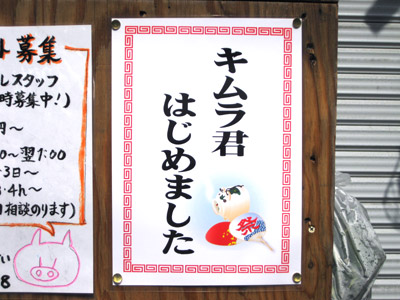 ト募集
ルスタッフ
時募集中!)
円〜
0〜翌1:00
3日〜
4h〜
相談のります)
8
キムラ君
はじめました
祭